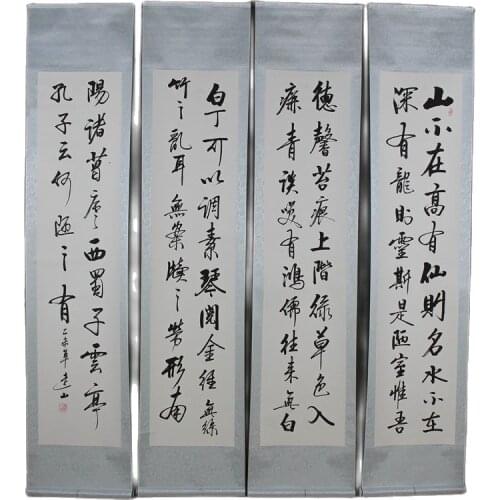 山不在高有仙則名水不在
深有龍則靈斯是陋室惟吾
德馨苔痕上階綠草色入
簾青談笑有鴻儒往来無白
白丁可以调素琴閱金經無絲
竹之亂耳無案牘之勞形南
陽諸葛庐西蜀子雲亭
孔子云何陋之有
乙未年